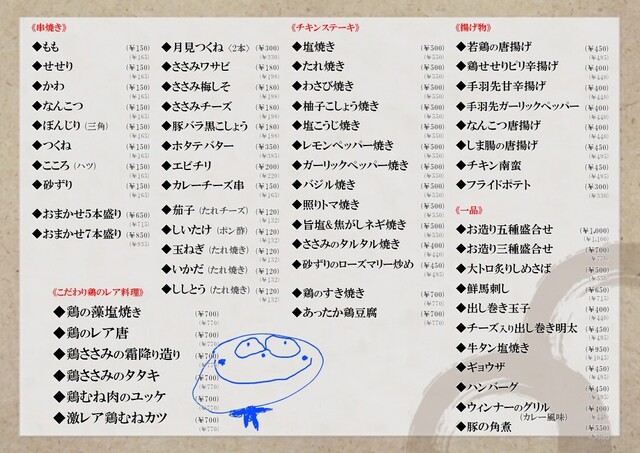 《串焼き》
◆もも (￥150)
(￥165)
◆せせり (￥150)
(￥165)
◆かわ (￥150)
(￥165)
◆なんこつ (￥150)
(￥165)
◆ぼんじり (三角) (￥150)
(￥165)
◆つくね (￥150)
(￥165)
◆こころ (ハツ) (￥150)
(￥165)
◆砂ずり (￥150)
(￥165)
◆おまかせ5本盛り (￥650)
(￥715)
◆おまかせ7本盛り (￥850)
(￥935)
◆月見つくね〈2本〉 (￥300)
(￥330)
◆ささみワサビ (￥180)
(￥198)
◆ささみ梅しそ (￥180)
(￥198)
◆ささみチーズ (￥180)
(￥198)
◆豚バラ黒こしょう (￥180)
(￥198)
◆ホタテバター (￥350)
(￥385)
◆エビチリ (￥200)
(￥220)
◆カレーチーズ串 (￥150)
(￥165)
◆茄子 (たれチーズ) (￥120)
(￥132)
◆しいたけ (ポン酢) (￥120)
(￥132)
◆玉ねぎ (たれ焼き) (￥120)
(￥132)
◆いかだ (たれ焼き) (￥120)
(￥132)
◆ししとう (たれ焼き) (￥120)
(￥132)
《こだわり鶏のレア料理》
◆鶏の藻塩焼き (￥700)
(￥770)
◆鶏のレア唐 (￥700)
(￥770)
◆鶏ささみの霜降り造り (￥700)
(￥770)
◆鶏ささみのタタキ (￥700)
(￥770)
◆鶏むね肉のユッケ (￥700)
(￥770)
◆激レア鶏むねカツ (￥700)
(￥770)
《チキンステーキ》
◆塩焼き (￥500)
(￥550)
◆たれ焼き (￥500)
(￥550)
◆わさび焼き (￥500)
(￥550)
◆柚子こしょう焼き (￥500)
(￥550)
◆塩こうじ焼き (￥500)
(￥550)
◆レモンペッパー焼き (￥500)
(￥550)
◆ガーリックペッパー焼き (￥500)
(￥550)
◆バジル焼き (￥500)
(￥550)
◆照りトマ焼き (￥500)
(￥550)
◆旨塩&焦がしネギ焼き (￥500)
(￥550)
◆ささみのタルタル焼き (￥400)
(￥440)
◆砂ずりのローズマリー炒め (￥450)
(￥495)
◆鶏のすき焼き (￥700)
(￥770)
◆あったか鶏豆腐 (￥700)
(￥770)
《揚げ物》
◆若鶏の唐揚げ (￥450)
(￥495)
◆鶏せせりピリ辛揚げ (￥400)
(￥440)
◆手羽先甘辛揚げ (￥400)
(￥440)
◆手羽先ガーリックペッパー (￥400)
(￥440)
◆なんこつ唐揚げ (￥400)
(￥440)
◆しま腸の唐揚げ (￥450)
(￥495)
◆チキン南蛮 (￥450)
(￥495)
◆フライドポテト (￥300)
(￥330)
《一品》
◆お造り五種盛合せ (￥1,000)
(￥1,100)
◆お造り三種盛合せ (￥700)
(￥770)
◆大トロ炙りしめさば (￥500)
(￥550)
◆鮮馬刺し (￥650)
(￥715)
◆出し巻き玉子 (￥400)
(￥440)
◆チーズ入り出し巻き明太 (￥450)
(￥495)
◆牛タン塩焼き (￥950)
(￥1045)
◆ギョウザ (￥450)
(￥495)
◆ハンバーグ (￥450)
(￥495)
◆ウィンナーのグリル (￥400)
(カレー風味) (￥440)
◆豚の角煮 (￥550)